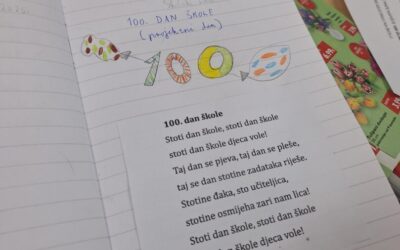 100. DAN ŠKOLE
(projektni dan)
100
100. dan škole
Stoti dan škole, stoti dan škole
stoti dan škole djeca vole!
Taj dan se pjeva, taj dan se pleše,
taj se dan stotine zadataka riješe.
Stotine đaka, sto učiteljica,
stotine osmijeha zari nam lica!
Stoti dan škole, stoti dan škole
dan škole djeca vole!